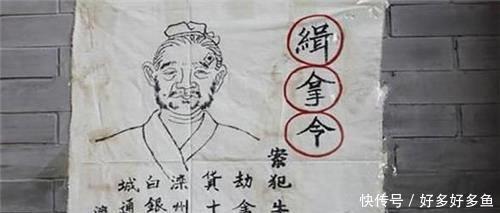 緝拿令
案犯
劫
貨十
滦州
白銀
城通
快传号 / 好多好多鱼